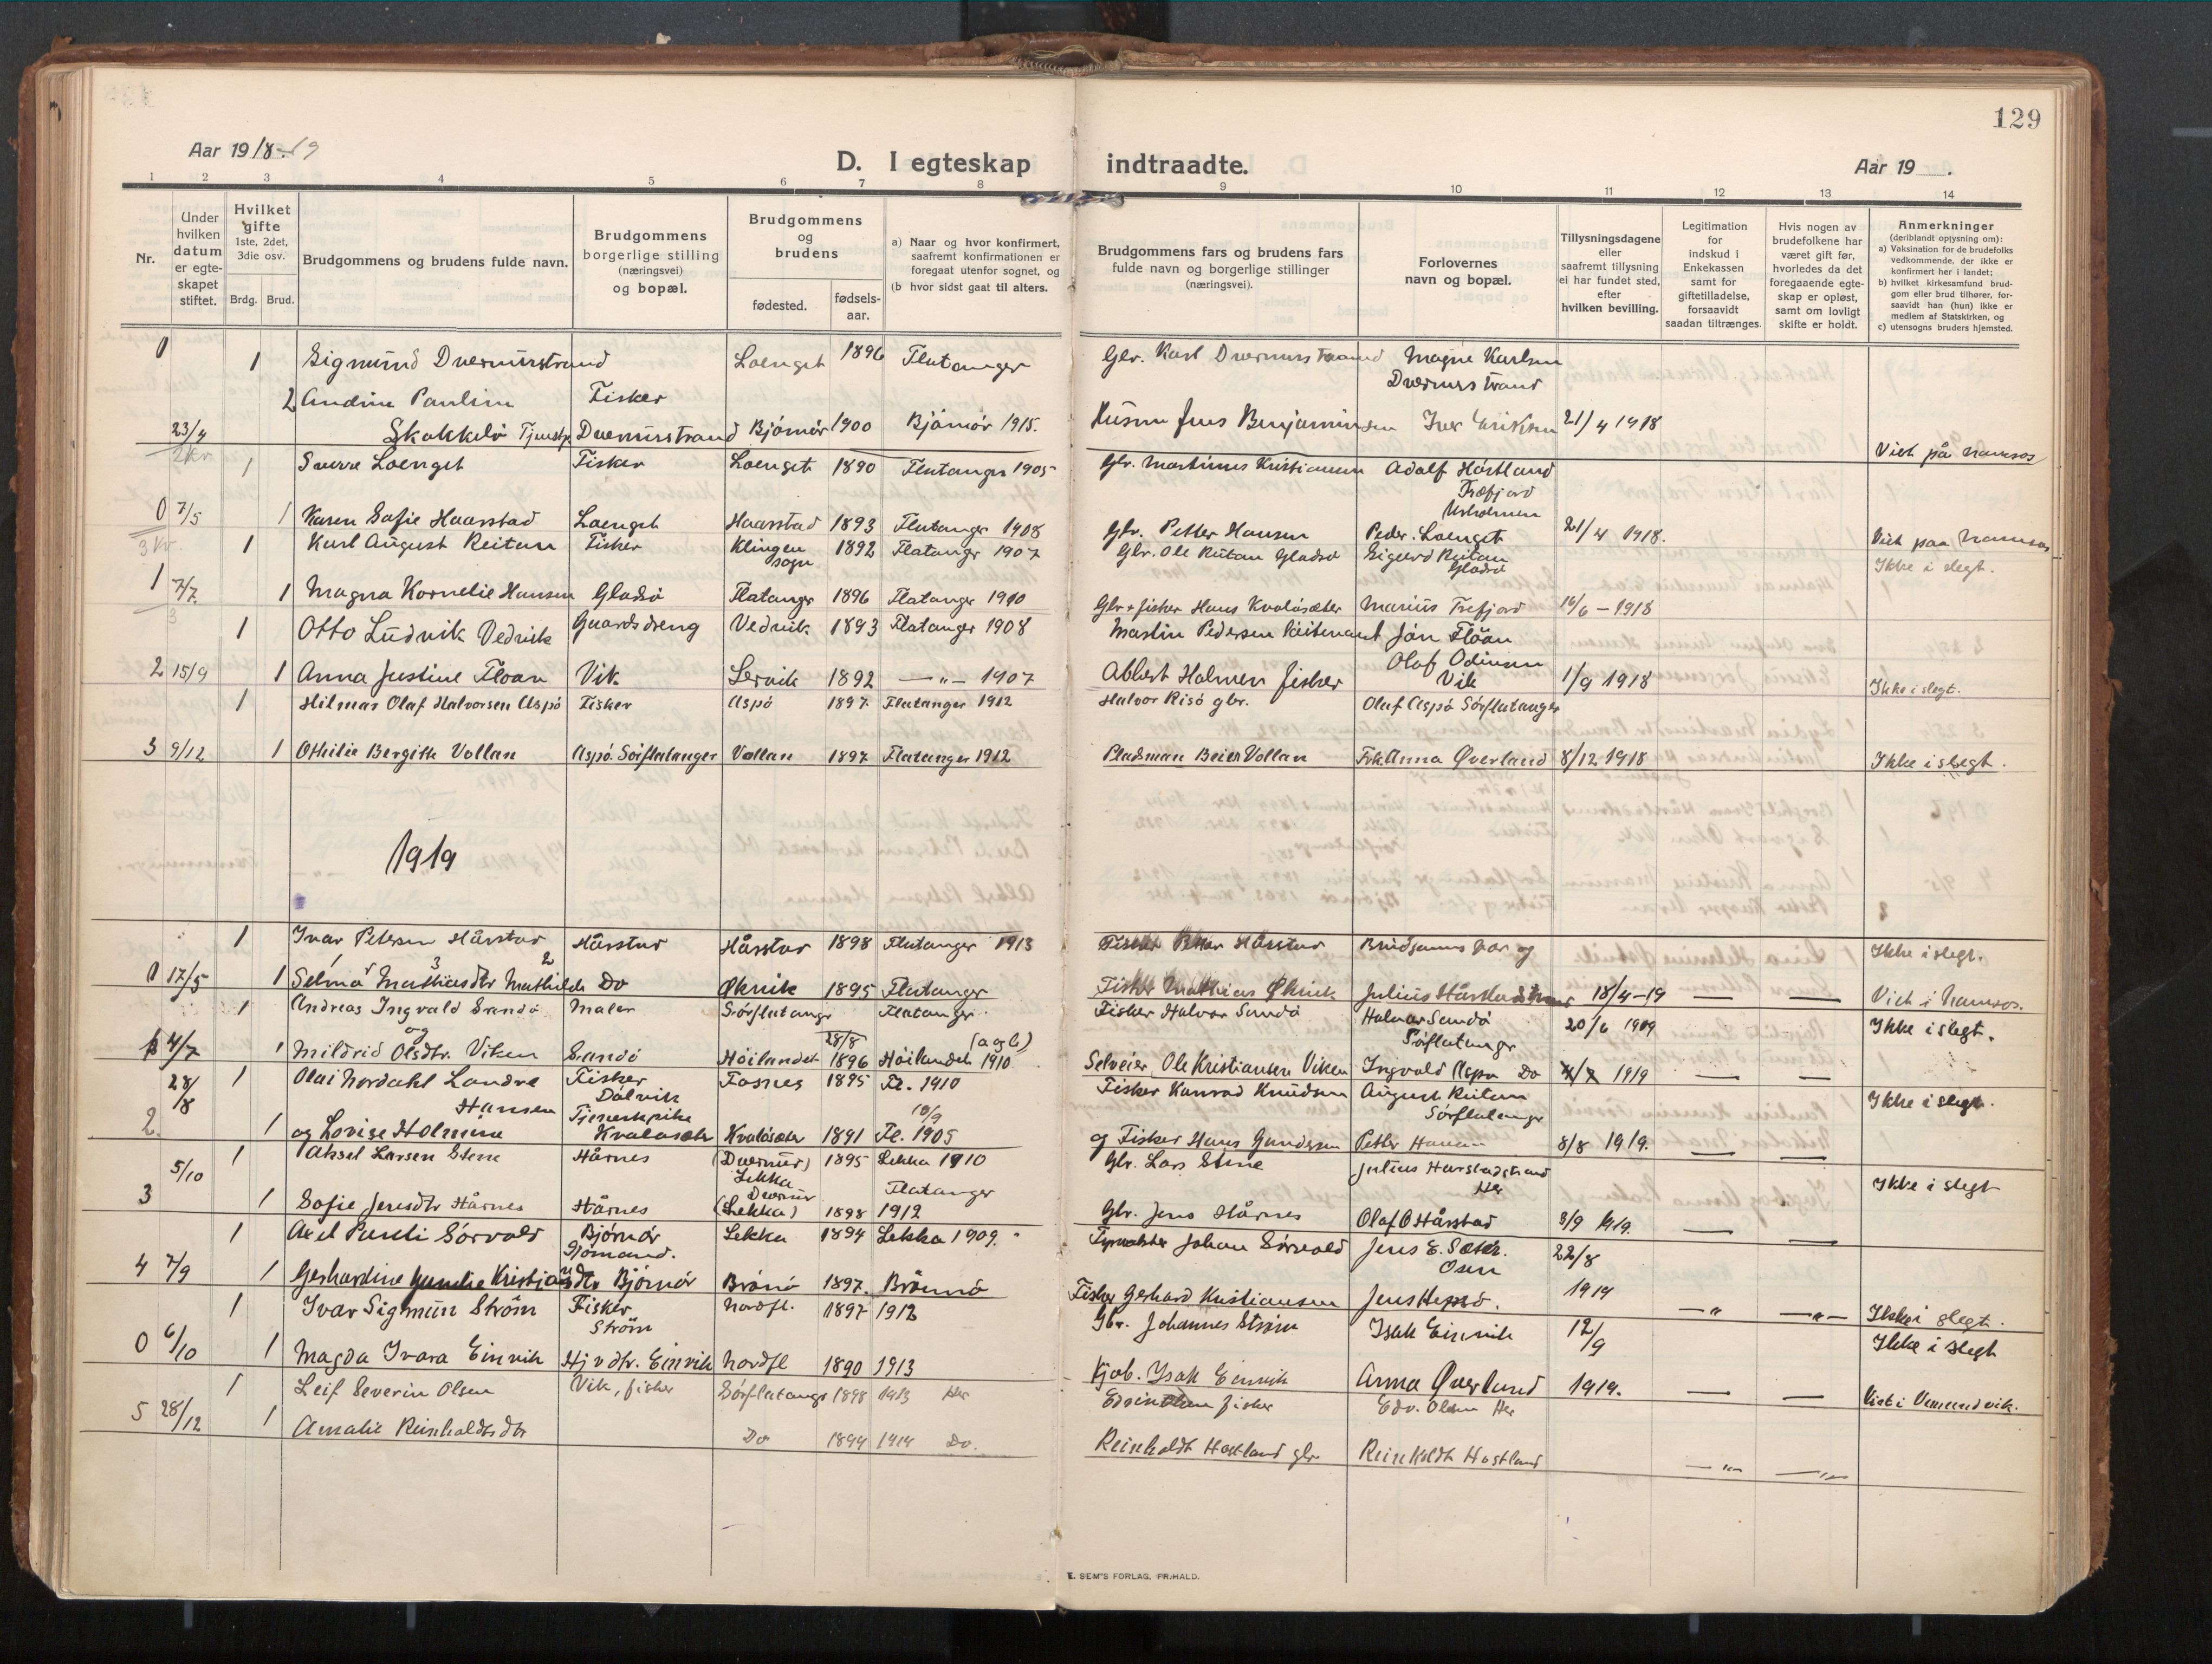 129
Aar 1918-19
D. I egteskap indtraadte.
Aar 19 .
1 2 3 4 5 6 7 8 9 10 11 12 13 14
Nr.
Under hvilken datum er egteskapet stiftet.
Hvilket gifte 1ste, 2det, 3die osv.
Brdg. Brud.
Brudgommens og brudens fulde navn.
Brudgommens borgerlige stilling (næringsvei) og bopæl.
Brudgommens og brudens
fødested.
fødsels-aar.
a) Naar og hvor konfirmert, saafremt konfirmationen er foregaat utenfor sognet, og
(b hvor sidst gaat til alters.
Brudgommens fars og brudens fars fulde navn og borgerlige stillinger (næringsvei).
Forlovernes navn og bopæl.
Tillysningsdagene eller saafremt tillysning ei har fundet sted, efter hvilken bevilling.
Legitimation for indskud i Enkekassen samt for giftetilladelse, forsaavidt saadan tiltrænges.
Hvis nogen av brudefolkene har været gift før, hvorledes da det foregaaende egteskap er opløst, samt om lovligt skifte er holdt.
Anmerkninger (deriblandt opjysning om):
a) Vaksination for de brudefolks vedkommende, der ikke er konfirmert her i landet;
b) hvilket kirkesamfund brudgom eller brud tilhører, forsaavidt han (hun) ikke er medlem af Statskirken, og
c) utensogns bruders hjemsted.
0 1 Sigmund Dvernurstrand Loenget 1896 Flatanger Gbr. Karl Dvernurstrand Magne Karlsen
Dvernurstrand
2 Andrine Pauline Fisker
23/4 Skakkelö Tjenestp. Dvernurstrand Bjórnör 1900 Bjórnör 1915. Husm Jens Benjaminsen Iver Eriksen 21/4 1918
Viet på Namsos
2 kr 1 Sverre Loenget Fisker Loenget 1890 Flatanger 1905 Gbr. Martinus Kristiansen Adolf Hörtland
Træfjord
0 7/5 1 Karen Sofie Haarstad Loenget Haarstad 1893 Flatanger 1908 Gbr. Petter Hansen Peder Loenget 21/4 1918. Viet paa Namsos
3 kr 1 Karl August Reitan Fisker Klingen sogn 1892 Flatanger 1907 Gbr. Ole Reitan Gladsö Sigurd Reitan Gladsö Ikke i slegt.
1 7/7. 1 Magna Kornelie Hansen Gladsö Flatanger 1896 Flatanger 1910 Gbr + fisker Hans Kvalösæter Marius Trefjord 16/6 - 1918
1 Otto Ludvik Vedvik Gaardsdreng Vedvik 1893 Flatanger 1908 Martin Pedersen Jón Flöan
Olaf Odinsen
2 15/9 1 Anna Justine Floan Vik Servik 1892 —"— 1907 Albert Holmen fisker Vik 1/9 1918 Ikke i slegt.
1 Hilmar Olaf Halvorsen Aspö Fisker Aspö 1897 Flatanger 1912 Halvor Risö gbr. Olaf Aspö Sörflatanger
3 9/12 1 Othilie Bergitte Vollan Aspö. Sörflatanger Vollan 1897 Flatanger 1912 Pladsman Beier Vollan Frk. Anna Øverland 8/12 1918 Ikke i slegt.
1919
1 Ivar Petersen Hårstad Hårstad Hårstad 1898 Flatanger 1913 Fisker Petter Hårstad Brudgoms far og Ikke i slegt.
1 3 2
0 17/5 1 Selma Mathiasdtr Mathilde Do Øksvik 1895 Flatanger Fisker Mathias Øksvik Julius Hårstadstrand 18/4-19 — — Viet i Namsos.
1 Andreas Ingvald Sandö Maler Sörflatanger Flatanger. Fisker Halvor Sandö Halvor Sandö Sörflatanger 20/6 1919 Ikke i slegt.
og
1 4/7 1 Mildrid Olsdtr. Viken Sandö Höilandet 28/8 1896 Höilandet 1910 (a og b) Selveier Ole Kristiansen Viken Ingvald Aspö Do 4/7 1919 — —
28/8 1 Olai Nordahl Landre Hansen Fisker Dalvik Fosnes 1895 Fl. 1910 Fisker Konrad Knudsen August Reitan Sörflatanger Ikke i slegt.
2. 1 og Lovise Holmine Tjenestepike Kvalösæter Kvalösæter 1891 10/9 Fl. 1905 og Fisker Hans Gundersen Petter Hansen 8/8 1919. — —
5/10 1 Aksel Larsen Stene Hårnes (Dvernur) Lekka 1895 Lekka 1910 Gbr. Lars Stene Julius Harstadstrand Her Ikke i slegt
3 1 Sofie Jensdtr Hårnes Hårnes Dvernur (Lekka) 1898 Flatanger 1912 Gbr. Jens Hårnes Olaf O Hårstad 3/9 1919. — —
1 Axel Pareli Sörvold Bjórnör Sjömand. Lekka 1894 Lekka 1909. Johan Sörvold Jens E. Sæter. Osen 22/8
4 7/9 1 Gerhardine Kristiansdtr Bjórnör Brönö 1897. Brönnö Fisker Gerhard Kristiansen Jens Hepsö. 1919 —"— —"— Ikke i slegt.
1 Ivar Sigmun Ström Fisker Ström Nordfl. 1897 1912 Gbr. Johannes Ström Isak Einvik 12/9 Ikke i slegt
0 6/10 1 Magda Ivara Einvik Hj v dtr. Einvik Nordfl 1890 1913 Kjøb. Isak Einvik Anna Øverland 1919. — — Viet i Vemundvik.
1 Leif Severin Olsen Vik, fisker Sörflatanger 1898 1913 Her Edvin Olsen fisker Edv. Olsen Her
5 28/12 1 Amalie Reinholdtsdtr Do 1899 1914 Do. Reinholdt Hastland gbr Reinholdt Hastland —"— —"—
E. SEM'S FORLAG, FR.HALD.